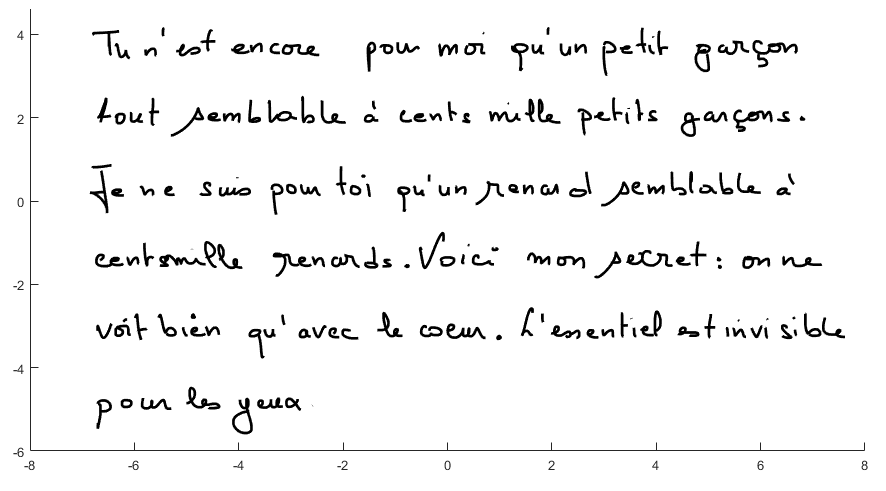 Tu n'est encore pour moi qu'un petit garçon
tout semblable à cents mille petits garçons.
Je ne suis pour toi qu'un renard semblable à
centsmille renards. Voici mon secret : on ne
voit bien qu'avec le coeur. L'essentiel est invisible
pour les yeux
4
2
0
-2
-4
-6
-8 -6 -4 -2 0 2 4 6 8